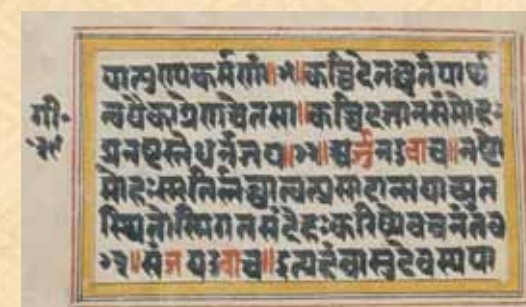 यात्पुण्यकर्मणां॥७१॥कच्चिदेतच्छ्रुतंपार्थ
त्वयैकाग्रेणचेतसा॥कच्चिदज्ञानसंमोहः
प्रनष्टस्तेधनंजय॥७२॥अर्जुनउवाच॥नष्टो
मोहःस्मृतिर्लब्धात्वत्प्रसादान्मयाच्युत
स्थितोस्मिगतसंदेहःकरिष्येवचनंतव
७३॥संजयउवाच॥इत्यहंवासुदेवस्यपा
गी॰